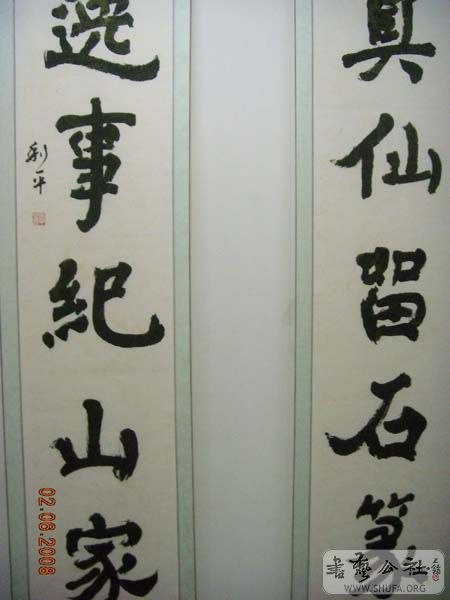 真仙留石篆
逸事紀山家
利平
02.06.2008
書藝公社
WWW.SHUFA.ORG